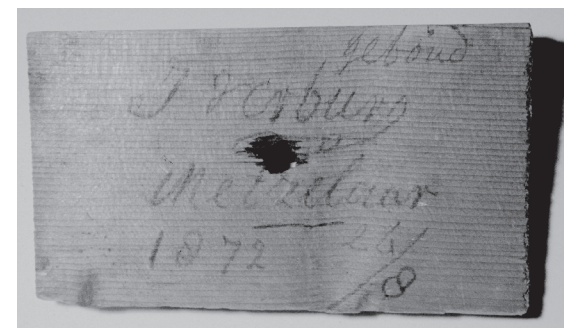 geboud
J Verburg
Metzelaar
1872 24/8